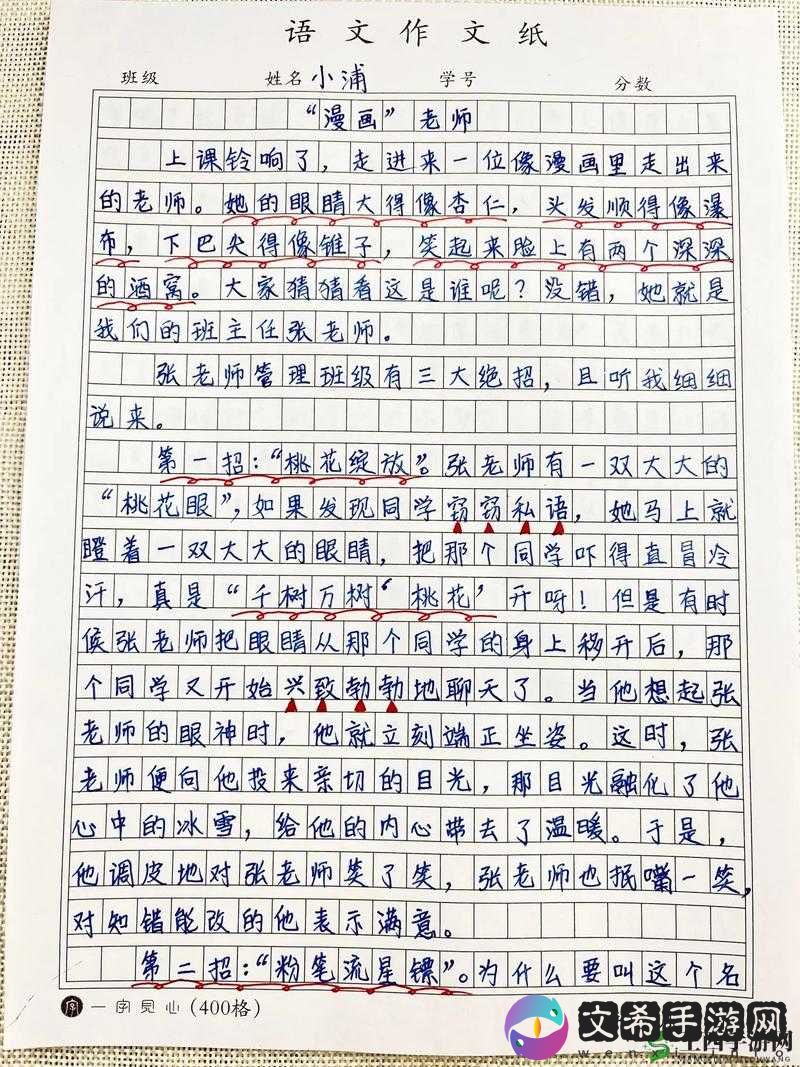 语文作文纸
班级 姓名 小浦 学号 分数
“漫画”老师
上课铃响了，走进来一位像漫画里走出来
的老师。她的眼睛大得像杏仁，头发顺得像瀑
布，下巴尖得像锥子，笑起来脸上有两个深深
的酒窝。大家猜猜看这是谁呢？没错，她就是
我们的班主任张老师。
张老师管理班级有三大绝招，且听我细细
说来。
第一招：“桃花绽放”。张老师有一双大大的
“桃花眼”，如果发现同学窃窃私语，她马上就
瞪着一双大大的眼睛，把那个同学吓得直冒冷
汗，真是“千树万树‘桃花’开呀！但是有时
候张老师把眼睛从那个同学的身上移开后，那
个同学又开始兴致勃勃地聊天了。当他想起张
老师的眼神时，他就立刻端正坐姿。这时，张
老师便向他投来亲切的目光，那目光融化了他
心中的冰雪，给他的内心带去了温暖。于是，
他调皮地对张老师笑了笑，张老师也抿嘴一笑，
对知错能改的他表示满意。
第二招：“粉笔流星镖”。为什么要叫这个名
字 一字见心（400格）
文希手游网